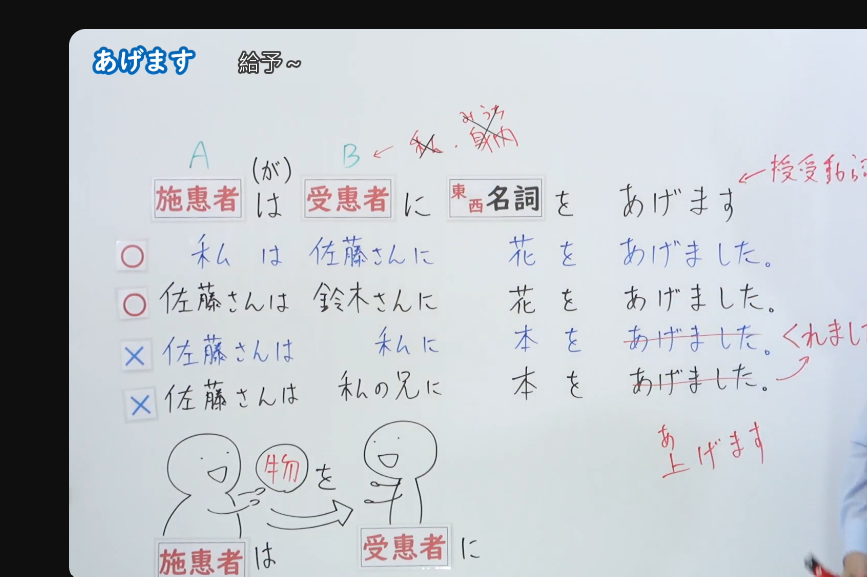 あげます 給予~
A B ← 私・身内 みうち
施惠者 (が) は 受惠者 に 東西名詞 を あげます ← 授受動詞
○ 私 は 佐藤さんに 花 を あげました。
○ 佐藤さんは 鈴木さんに 花 を あげました。
× 佐藤さんは 私に 本 を あげました。くれまし
× 佐藤さんは 私の兄に 本 を あげました。
あ
上げます
物 を
施惠者 は 受惠者 に